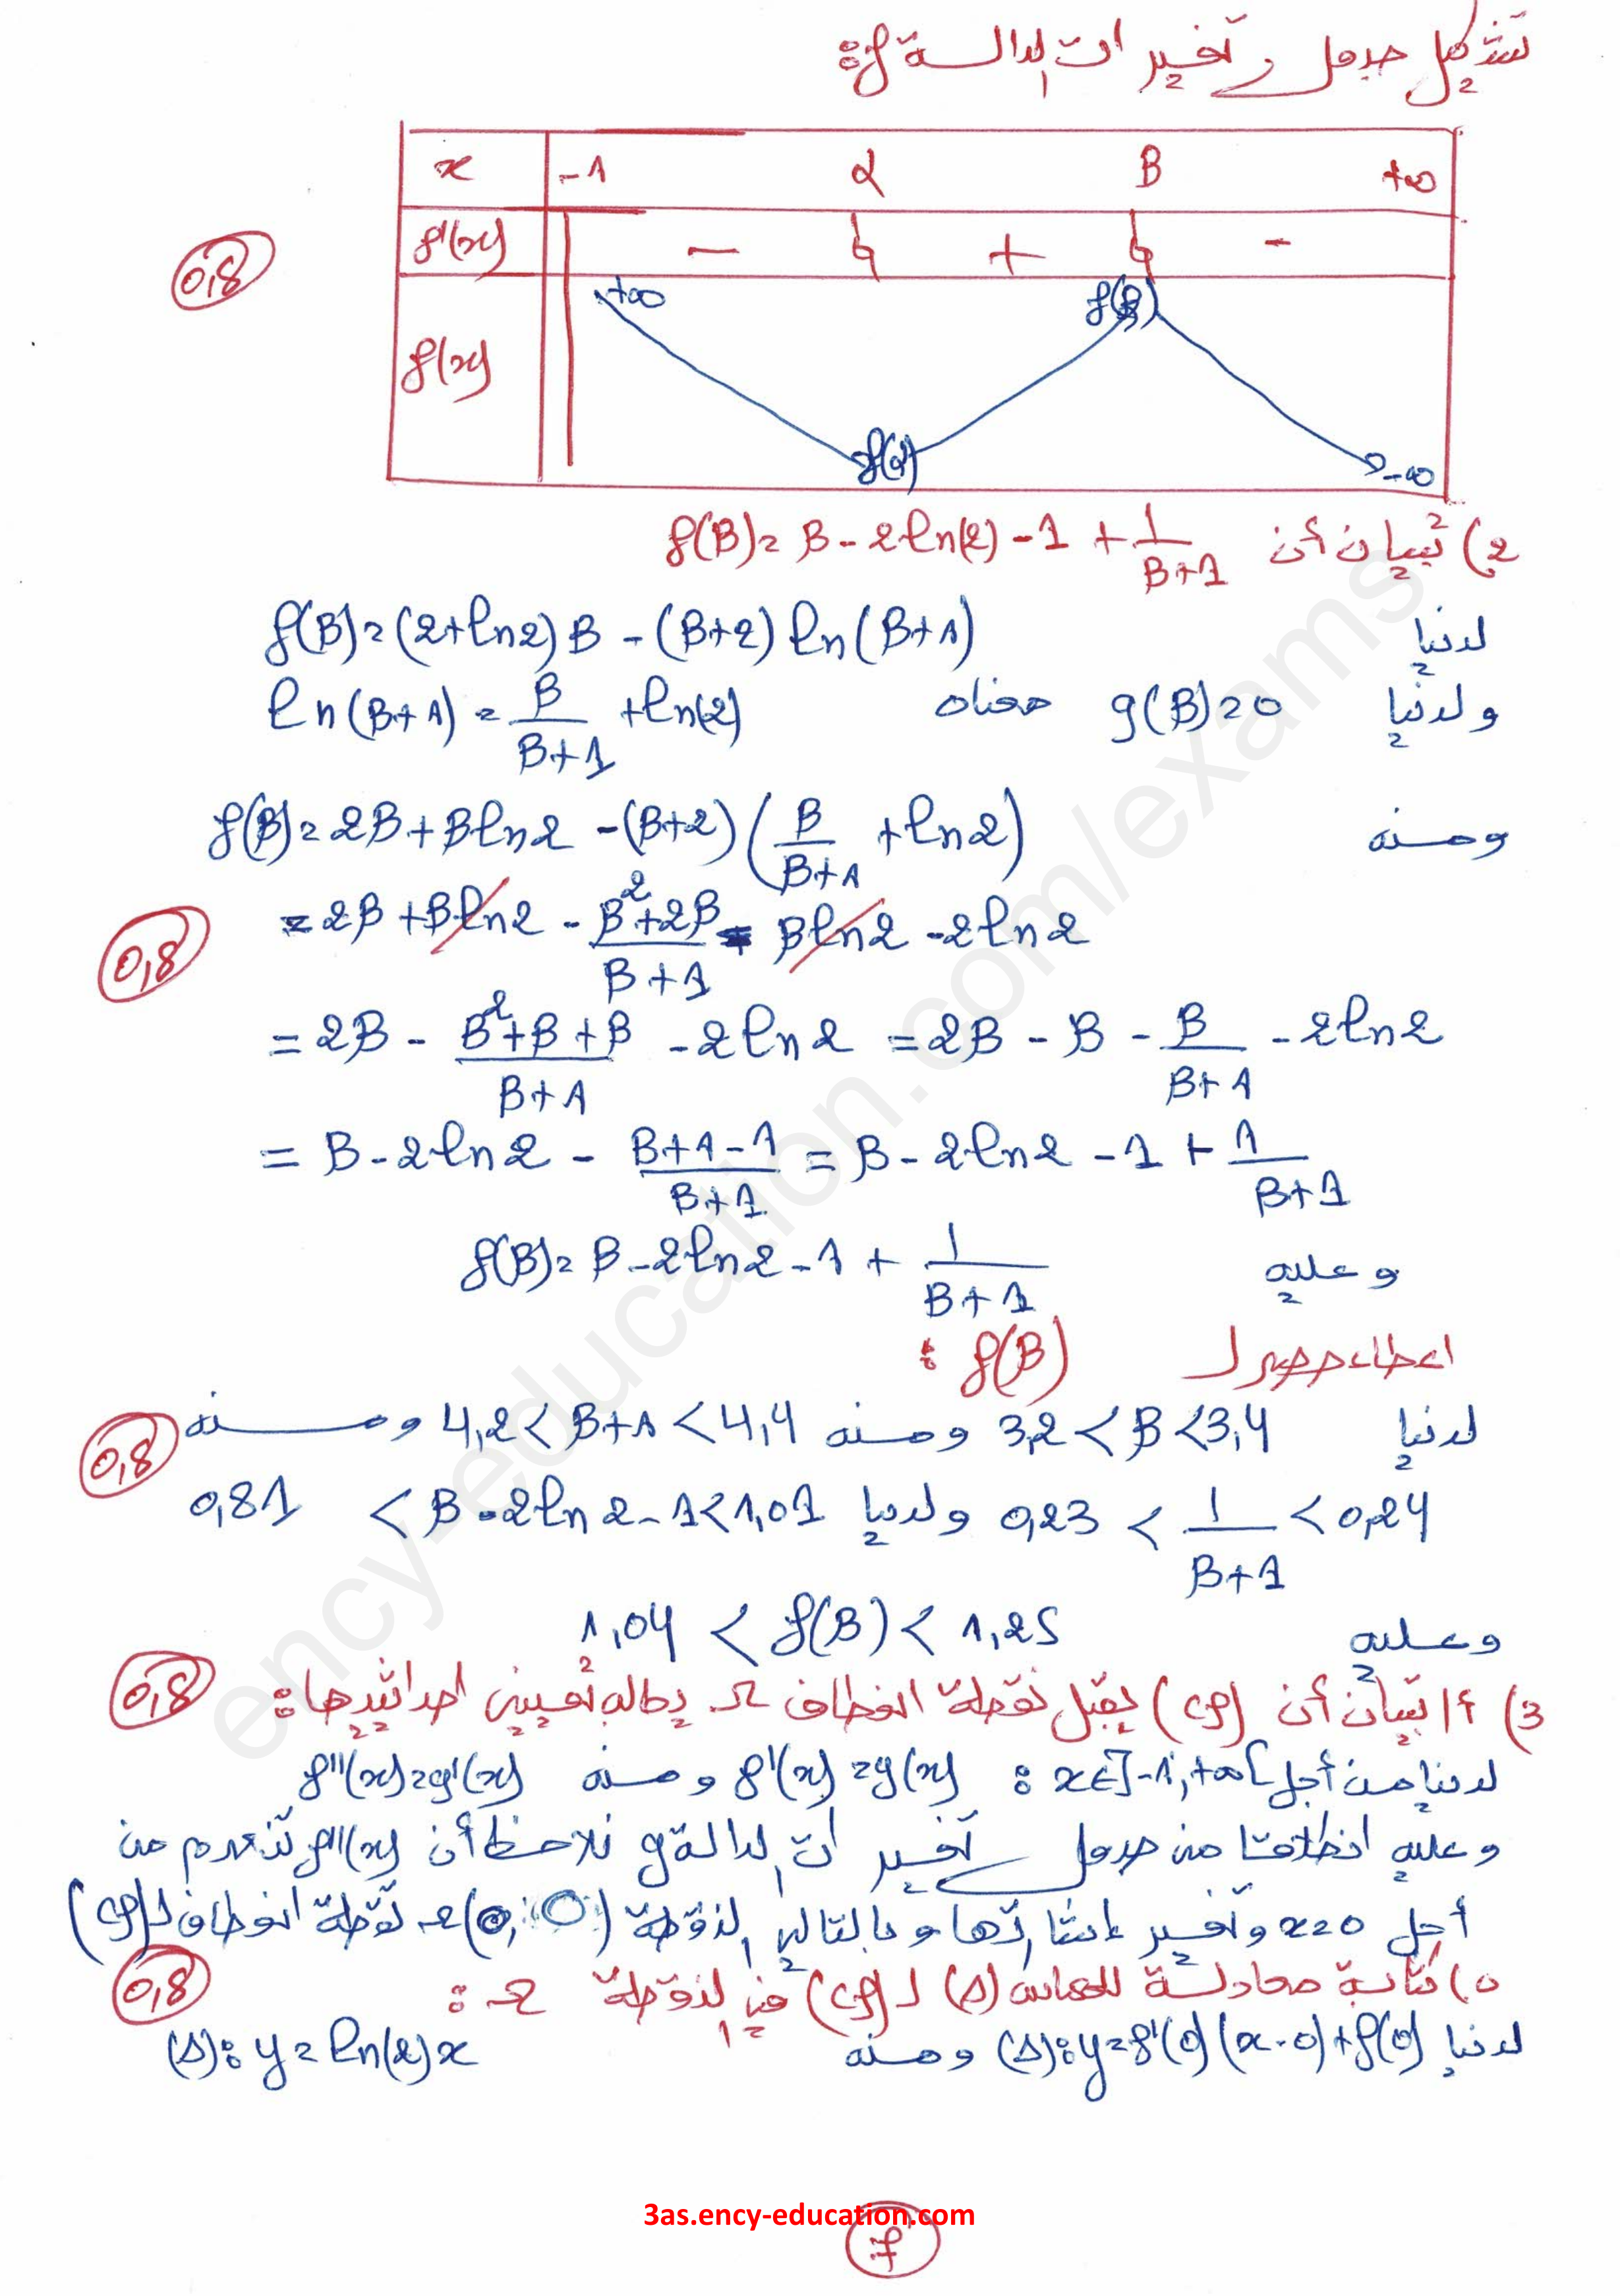 تشكيل جدول تغيرات الدالة f:
x -1 α β +∞
f'(x) - 0 + 0 -
0,8
f(x) +∞ f(α) f(β) -∞
2) تبيان أن f(β) = β - 2ln(2) - 1 + 1/(β+1)
لدينا f(β) = (2+ln2)β - (β+2) ln(β+1)
ولدينا g(β) = 0 معناه ln(β+1) = β/(β+1) + ln(2)
ومنه f(β) = 2β + βln2 - (β+2)(β/(β+1) + ln2)
0,8
= 2β + βln2 - (β²+2β)/(β+1) - βln2 - 2ln2
= 2β - (β²+β+β)/(β+1) - 2ln2 = 2β - β - β/(β+1) - 2ln2
= β - 2ln2 - (β+1-1)/(β+1) = β - 2ln2 - 1 + 1/(β+1)
وعليه f(β) = β - 2ln2 - 1 + 1/(β+1)
اعطاء حصر لـ f(β) :
0,8
لدينا 3,2 < β < 3,4 ومنه 4,2 < β+1 < 4,4 ومنه
0,23 < 1/(β+1) < 0,24 ولدينا 0,81 < β - 2ln2 - 1 < 1,01
وعليه 1,04 < f(β) < 1,25
3) أ/ تبيان أن (Cf) يقبل نقطة انعطاف Ω يطلب تعيين احداثييها: 0,8
لدينا من أجل x∈]-1;+∞[ : f'(x) = g(x) ومنه f''(x) = g'(x)
وعليه انطلاقا من جدول تغيرات الدالة g نلاحظ أن f''(x) تنعدم من
أجل x=0 وتغير اشارتها وبالتالي النقطة Ω(0; 0) نقطة انعطاف لـ (Cf)
0,8
كتابة معادلة للمماس (Δ) لـ (Cf) في النقطة Ω :
لدينا (Δ): y = f'(0)(x-0) + f(0) ومنه (Δ): y = ln(2)x
3as.ency-education.com
ency-education.com/exams